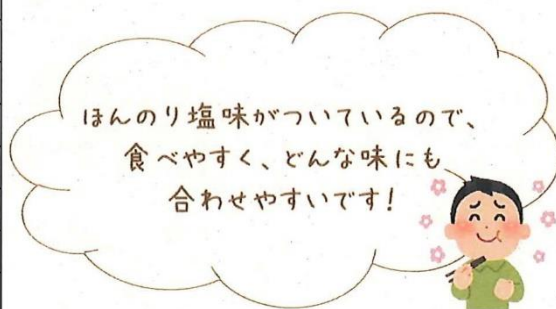 ほんのり塩味がついているので、
食べやすく、どんな味にも
合わせやすいです!